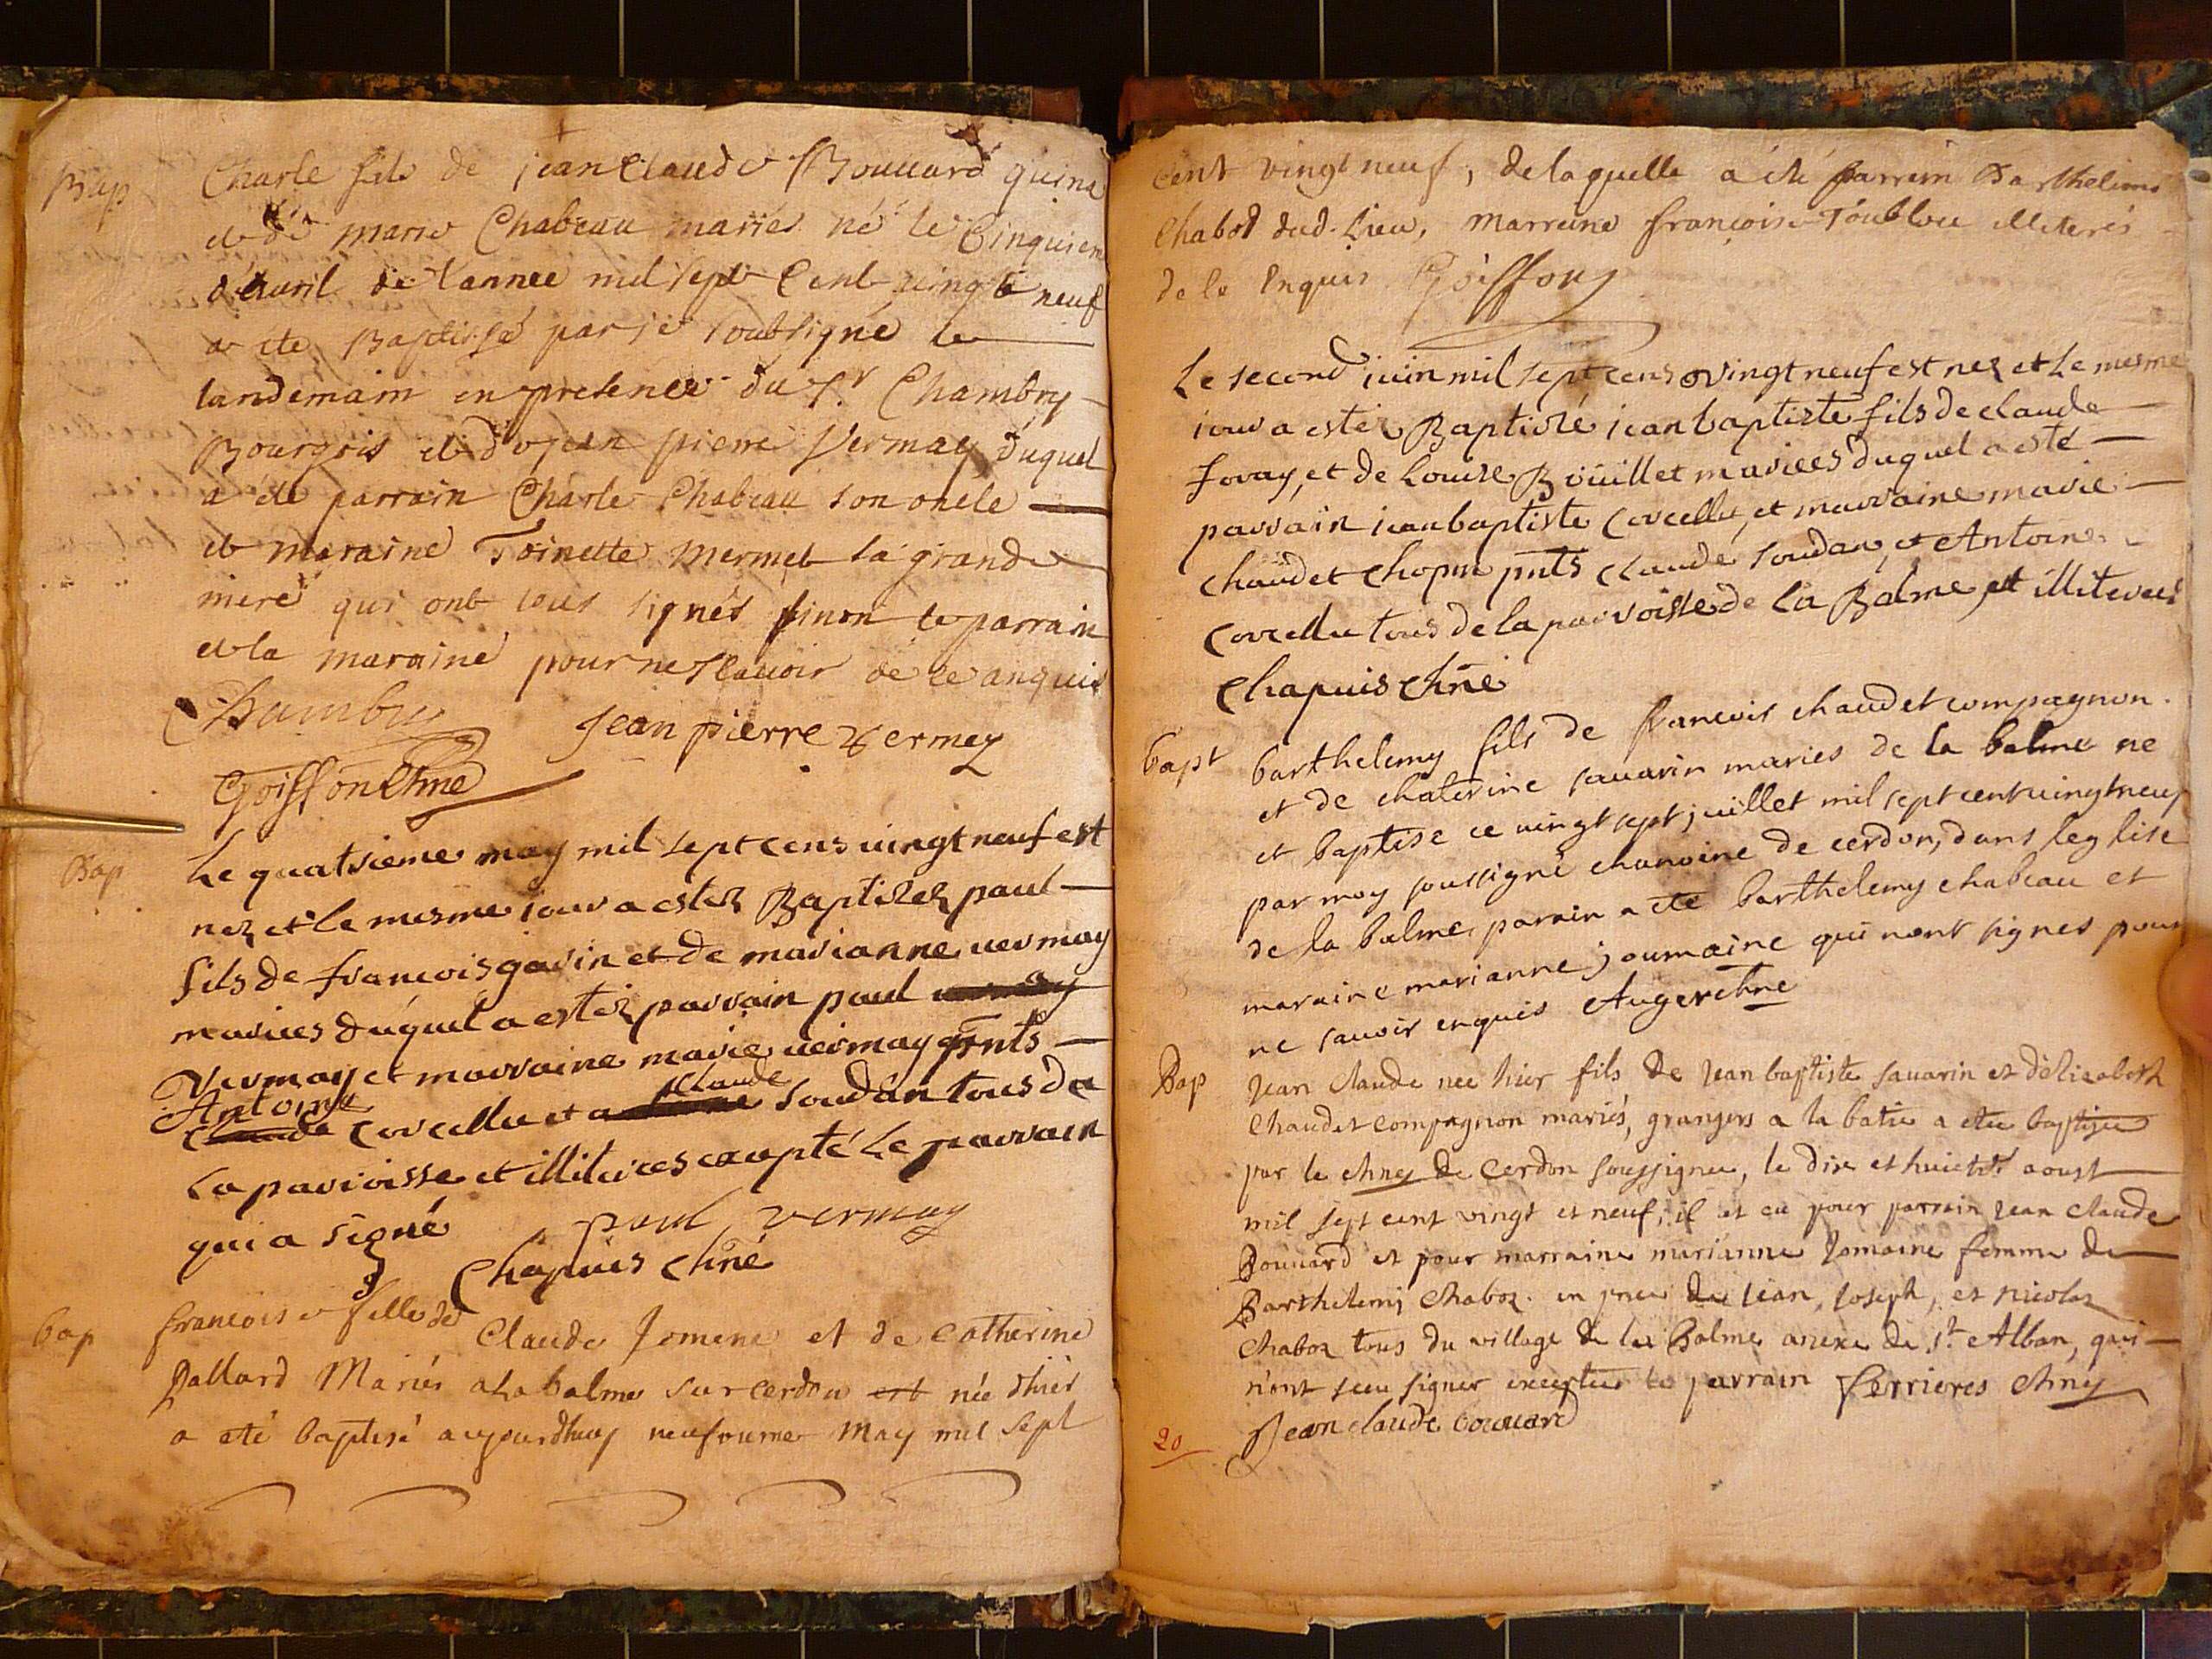 Bap
Charle fils de jean Claude Bouuard quine
et de marie Chabeau mariés né le Cinquiem
d'auril de l'annee mil sept Cent vingt neuf
a ete Baptissé par je soubsigné le
landemain en presence du Sr. Chambry
Bourgois et de jean pierre Vermay duquel
a ete parrain Charle Chabeau son oncle
et maraine Toinette Mermet sa grande
mere qui ont tous signés sinon le parrain
et la maraine pour ne sçauoir de ce anquis
Chambry Jean pierre Vermey
Goiffon chne
Bap
Le quatrieme may mil sept cens vingt neuf est
nez et le mesme jour a estez Baptizez paul
fils de francois gavin et de marianne vermay
mariees duquel a estez parrain paul
Vermay et marraine marie vermay pnts
Antoine claude
Corcellu et a soudan tous de
La parroisse et illiteres excepté Le parrain
qui a signé paul vermay
Chapuis chne
bap
francoise fille de Claude Jomene et de Catherine
Ballard Mariés a La balme sur cerdon est née d'hier
a eté baptisé aujourdhuy neufvieme May mil Sept
Cent vingt neuf, de laquelle a été parrein Barthelimi
Chabod dud. Lieu, Marreine françoise Toublou illiterés
de ce Enquis Goiffon
Le second juin mil sept cens vingt neuf est nez et Le mesme
jour a estez Baptizé jean baptiste fils de claude
fovay, et de Louise Boüillet mariees duquel a esté
parrain jean baptiste Corcellu, et marraine marie
chaudet Chopin pnts Claude soudan, et Antoine
Corcellu tous de la parroisse de La Balme, et illiterees
Chapuis chne
bapt
barthelemy fils de francois chaudet compagnon.
et de chaterine savarin maries de la balme ne
et baptise ce vingt sept juillet mil sept cent vingt neuf
par moy soussigné chanoine de cerdon, dans leglise
de la balme, parain a ete barthelemy chabeau et
maraine marianne joumaine qui nont signes pour
ne savoir enquis Auger chne
Bap
Jean Claude nee hier fils de Jean baptiste savarin et d'elizabeth
Chaudet compagnon mariés, grangers a la batie a etee baptizee
par le chne de Cerdon soussignee, le dix et huict aoust
mil sept cent vingt et neuf, il at eu pour parrain Jean Claude
Bouuard et pour marraine marianne Jomaine femme de
Barthelemi Chaboz. en pnce de Jean, Joseph, et nicolas
Chaboz tous du village de la Balme anexe de St. Alban, qui
n'ont sceu signer exceptee le parrain Ferrieres chne
Jean claude bouuard
20